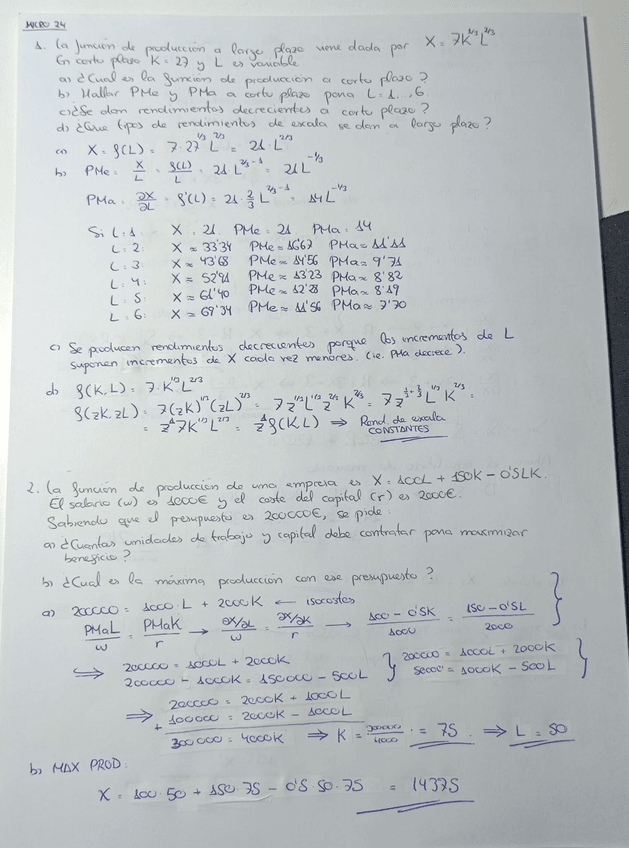 MICRO 24
1. La función de producción a largo plazo viene dada por X = 7K^1/3 L^2/3
En corto plazo K = 27 y L es variable
a) ¿Cual es la función de producción a corto plazo?
b) Hallar PMe y PMa a corto plazo para L = 1, ..., 6.
c) ¿Se dan rendimientos decrecientes a corto plazo?
d) ¿Que tipos de rendimientos de escala se dan a largo plazo?
a) X = f(L) = 7·27^1/3 L^2/3 = 21·L^2/3
b) PMe = X/L = f(L)/L = 21 L^2/3-1 = 21 L^-1/3
PMa = ∂X/∂L = f'(L) = 21·2/3 L^2/3-1 = 14L^-1/3
Si L = 1 X = 21. PMe = 21 PMa = 14
L = 2: X ≈ 33'34 PMe ≈ 16'67 PMa ≈ 11'11
L = 3: X ≈ 43'68 PMe ≈ 14'56 PMa ≈ 9'71
L = 4: X ≈ 52'91 PMe ≈ 13'23 PMa ≈ 8'82
L = 5: X ≈ 61'40 PMe ≈ 12'28 PMa ≈ 8'19
L = 6: X ≈ 69'34 PMe ≈ 11'56 PMa ≈ 7'70
c) Se producen rendimientos decrecientes porque los incrementos de L
suponen incrementos de X cada vez menores. (ie. PMa decrece).
d) f(K,L) = 7·K^1/3 L^2/3
f(zK, zL) = 7(zK)^1/3 (zL)^2/3 = 7z^1/3 L^1/3 z^2/3 K^2/3 = 7z^1/3+2/3 L^1/3 K^2/3 =
= z^1 7K^1/3 L^2/3 = z^1 f(K,L) ⇒ Rend. de escala
CONSTANTES
2. La función de producción de una empresa es X = 100L + 150K - 0'5LK.
El salario (w) es 1000€ y el coste del capital (r) es 2000€.
Sabiendo que el presupuesto es 200000€, se pide:
a) ¿Cuantas unidades de trabajo y capital debe contratar para maximizar
beneficio?
b) ¿Cual es la máxima producción con ese presupuesto?
a) 200000 = 1000·L + 2000K ← isocostes
PMaL/w = PMaK/r → ∂X/∂L/w = ∂X/∂K/r → 100 - 0'5K/1000 = 150 - 0'5L/2000
⇒ 200000 = 1000L + 2000K
200000 - 1000K = 150000 - 500L
200000 = 1000L + 2000K
50000 = 1000K - 500L
⇒ 200000 = 2000K + 1000L
+ 100000 = 2000K - 1000L
300000 = 4000K ⇒ K = 300000/4000 = 75 ⇒ L = 50
b) MAX PROD:
X = 100·50 + 150·75 - 0'5·50·75 = 14375